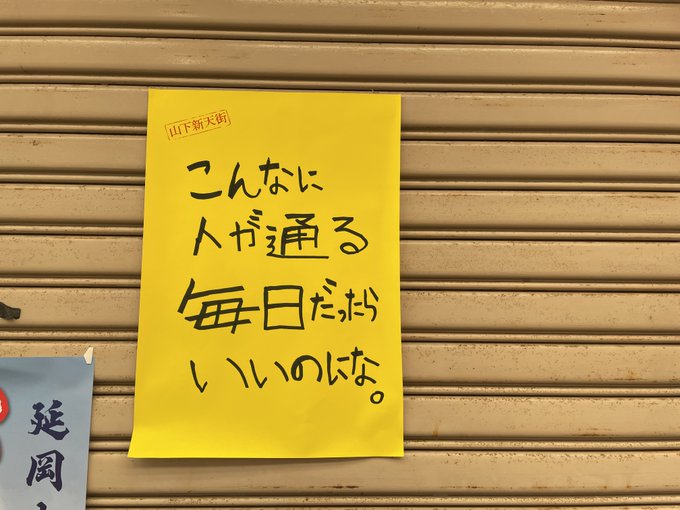 山下新天街
こんなに
人が通る
毎日だったら
いいのにな。
延岡